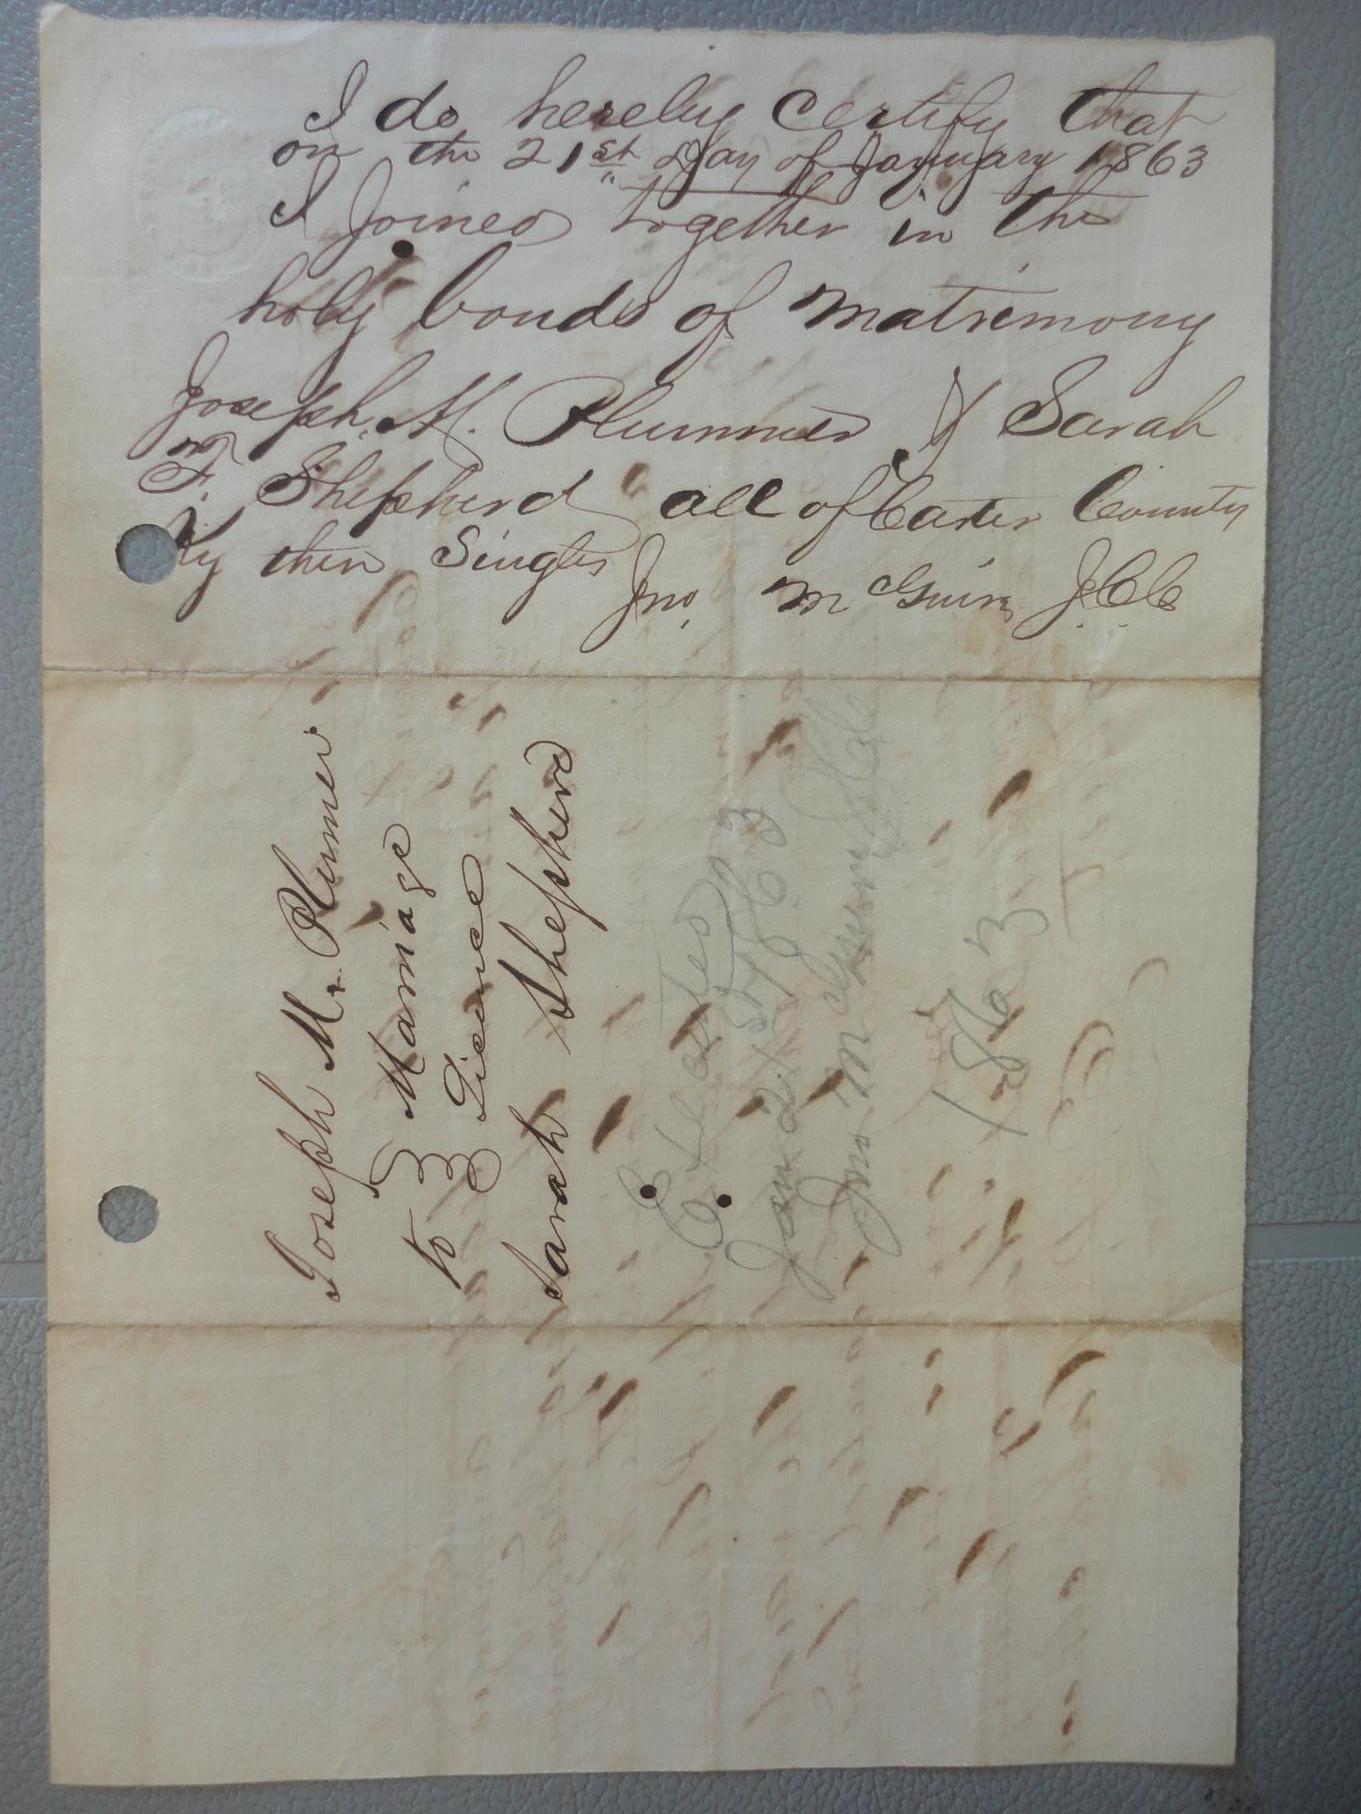 I do hereby certify that
on the 21st day of January 1863
I Joined together in the
holy bonds of matrimony
Joseph. M. Plummer & Sarah
F. Shepherd all of Carter County
Ky then Singles
Jno. McGuire J.C.C.
Joseph M. Plummer
to } Marriage
} Licence
Sarah Shepherd
Executed
Jan 21st 1863
Jno McGuire
1863